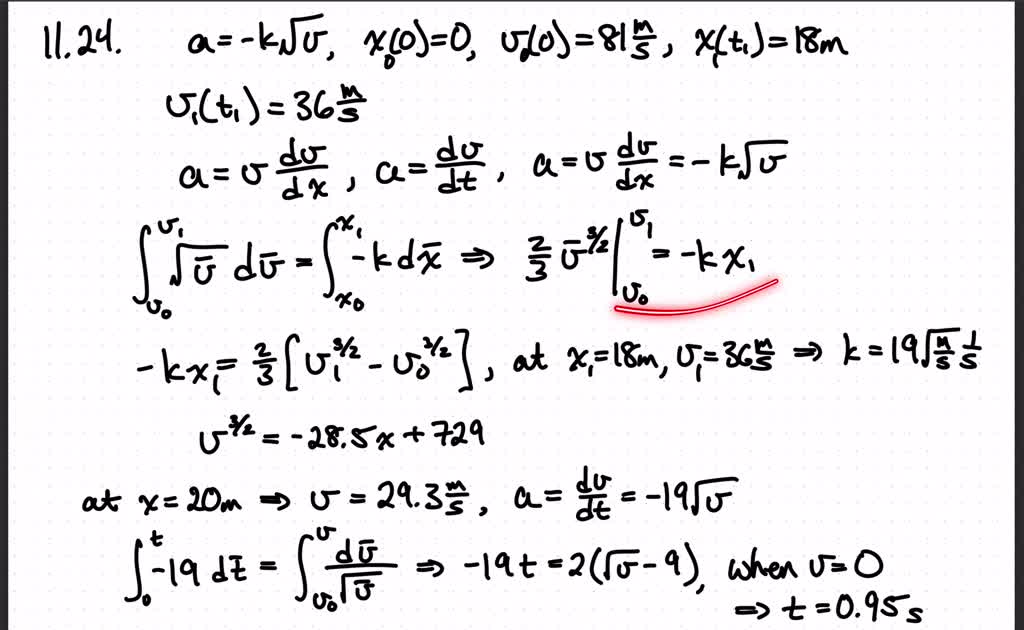 11.24. a = -k√v, x₀(0) = 0, v₀(0) = 81 m/s, x₁(t₁) = 18m
v₁(t₁) = 36 m/s
a = v dv/dx, a = dv/dt, a = v dv/dx = -k√v
∫_{v₀}^{v₁} √v̄ dv̄ = ∫_{x₀}^{x₁} -k dx̄ ⇒ 2/3 v̄^{3/2} |_{v₀}^{v₁} = -k x₁
-kx₁ = 2/3 [v₁^{3/2} - v₀^{3/2}], at x₁ = 18m, v₁ = 36 m/s ⇒ k = 19 √(m/s) 1/s
v^{3/2} = -28.5x + 729
at x = 20m ⇒ v = 29.3 m/s, a = dv/dt = -19√v
∫_{0}^{t} -19 dt̄ = ∫_{v₀}^{v} dv̄/√v̄ ⇒ -19t = 2(√v - 9), when v = 0
⇒ t = 0.95 s